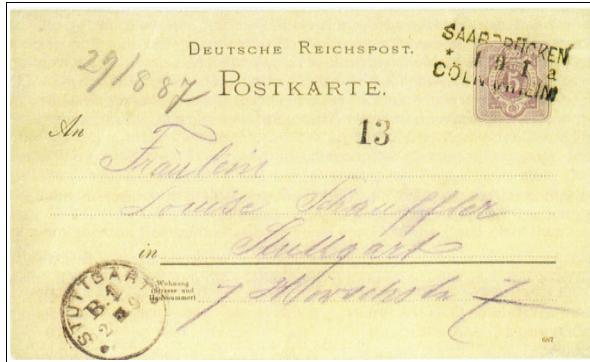 DEUTSCHE REICHSPOST.
29/8 87
POSTKARTE.
SAARBRÜCKEN
* 1 9 1 a
CÖLN (RHEIN)
5
13
An
Fräulein
Louise Schauffler
in Stuttgart
Wohnung
(Strasse und
Hausnummer)
7
7
STUTTGART
B.1
2 9
687